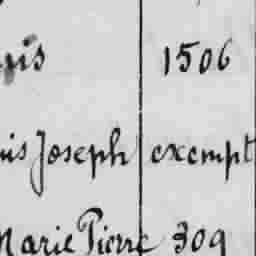 uis 1506
uis Joseph exempt
Marie Pierre 309